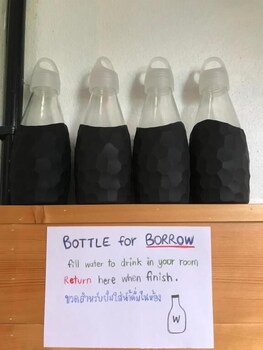 BOTTLE for BORROW
fill water to drink in your room
Return here when finish.
ขวดสำหรับปั่นใส่น้ำดื่มในห้อง
W